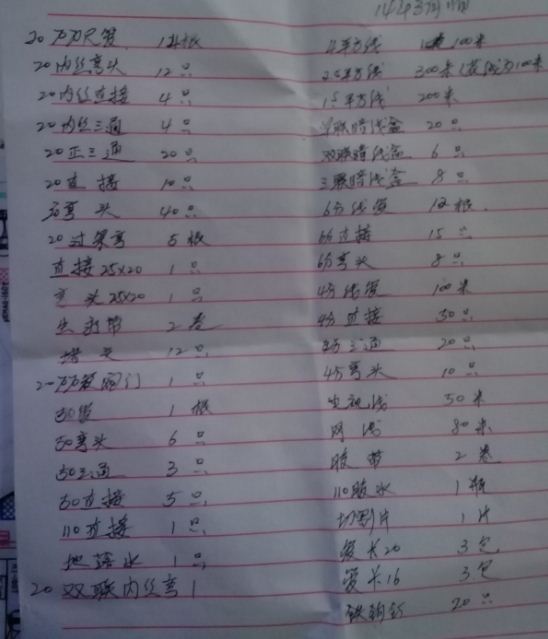 20 内丝弯头 12只
20内丝直接 4只
20内丝三通 4只
20正三通 20只
20直接 10只
弯头 40只
20过桥弯 5根
直接25x20 1只
弯头25x20 1只
生料带 2卷
堵头 12只
阀门 1只
50管 1根
50弯头 6只
50三通 3只
50直接 5只
110直接 1只
地落水 1只
20 双联内丝弯 1
4平方线 100米
2.5平方线 300米 100米
1.5平方线 200米
单联暗线盒 20只
双联暗线盒 6只
三联暗线盒 8只
6分线管 12根
6分直接 15只
6分弯头 8只
4分线管 100米
4分直接 30只
4分三通 20只
4分弯头 10只
电视线 50米
网线 80米
胶带 2卷
110胶水 1瓶
切割片 1片
管卡20 3包
管卡16 3包
20只